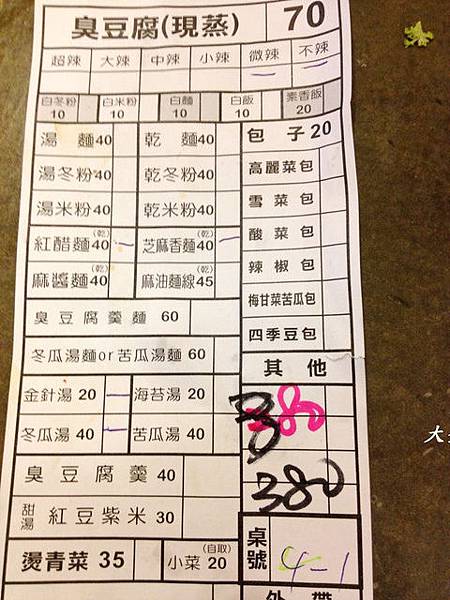 臭豆腐(現蒸) 70
超辣 大辣 中辣 小辣 微辣 不辣
白冬粉 10 白米粉 10 白麵 10 白飯 10 素香飯 20
湯麵 40 乾麵 40 包子 20
湯冬粉 40 乾冬粉 40 高麗菜包
湯米粉 40 乾米粉 40 雪菜包
紅醋麵(乾) 40 芝麻香麵(乾) 40 酸菜包
麻醬麵(乾) 40 麻油麵線(乾) 45 辣椒包
臭豆腐羹麵 60 梅甘菜苦瓜包
冬瓜湯麵or苦瓜湯麵 60 四季豆包
其他
金針湯 20 海苔湯 20
80
冬瓜湯 40 苦瓜湯 40
臭豆腐羹 40
380
甜湯 紅豆紫米 30
燙青菜 35 小菜(自取) 20
桌號 4-1
外帶
大